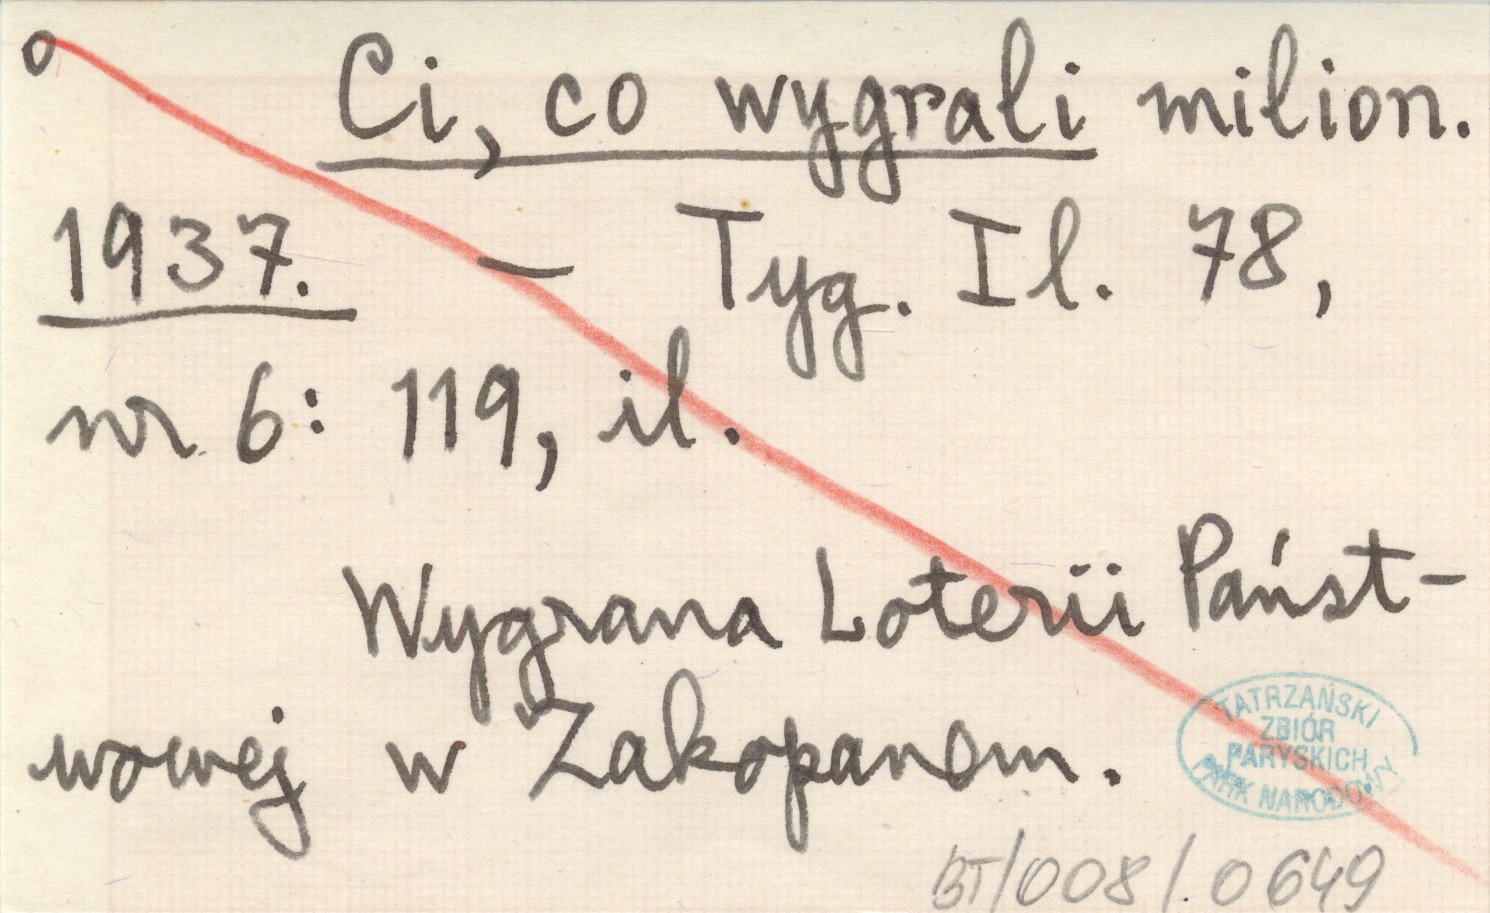 o Ci, co wygrali milion.
1937. — Tyg. Il. 78,
nr 6: 119, il.
Wygrana Loterii Państ-
wowej w Zakopanem.
TATRZAŃSKI
ZBIÓR
PARYSKICH
PARK NARODOWY
BT/008/.0649